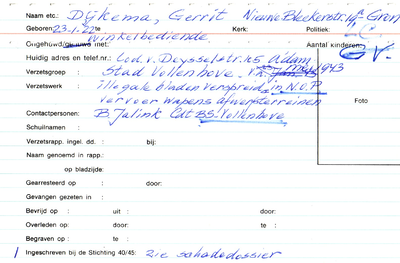 Naam etc.: Dijkema, Gerrit Nieuwe Blekerstr. 14a Gron
Geboren: 23-1-22 te Kerk: Politiek:
winkelbediende
Ongehuwd/gehuwd met: Aantal kinderen:
G.V.
Huidig adres en telef.nr.: Lod. v. Deysselstr. 165 A'dam
Verzetsgroep : Stad Vollenhove. v.a. mei 1943
Verzetswerk : illegale bladen verspreid, in N.O.P.
vervoer wapens afwerpterreinen
Foto
Contactpersonen: B. Jalink Cdt BS-Vollenhove
Schuilnaam :
Verzetsrapp. ingel. dd. : bij:
Naam genoemd in rapp.:
op bladzijde:
Gearresteerd op : door:
Gevangen gezeten in :
Bevrijd op : uit : door:
Overleden op: door: te :
Begraven op : te :
Ingeschreven bij de Stichting 40/45: zie schadedossier